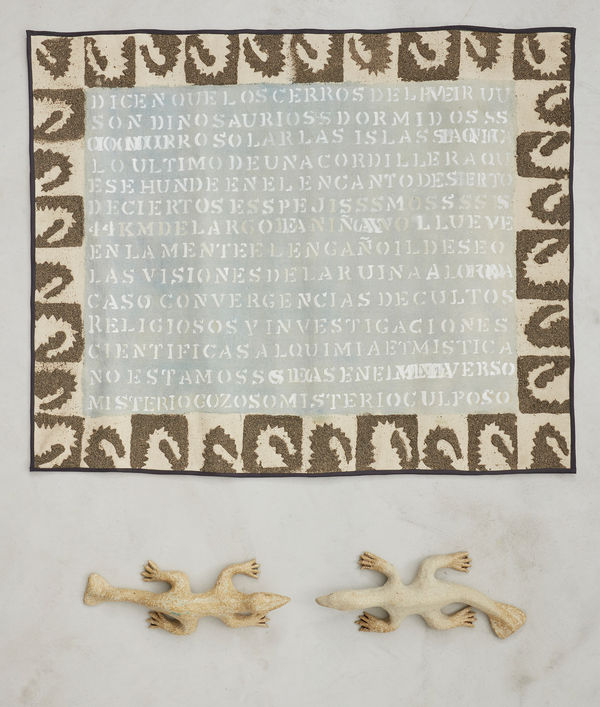 DICEN QUE LOS CERROS DEL
SON DINOSAURIOS DORMIDOS
SOLAR LAS ISLAS
LO ULTIMO DE UNA CORDILLERA QU
E SE HUNDE EN EL ENCANTO DESIERTO
DE CIERTOS ESSPEJISSSMOSSSS
44 KM DE LARGO NIÑA LLUEVE
EN LA MENTE EL ENGAÑO IL DESEO
LAS VISIONES DE LA RUINA A LO
CASO CONVERGENCIAS DE CULTOS
RELIGIOSOS Y INVESTIGACIONES
CIENTIFICAS ALQUIMIA ET MISTICA
NO ESTAMOS EN EL
MISTERIO GOZOSO MISTERIO CULPOSO